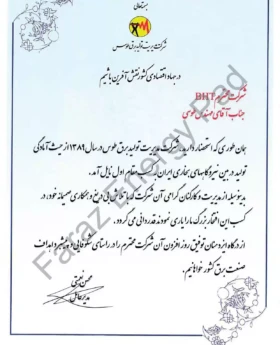 بسمه تعالی
شرکت مدیریت تولید برق طوس
در جهاد اقتصادی کشور نقش آفرین باشیم
شرکت محترم BHT
جناب آقای مهندس طوسی
همان طوری که استحضار دارید، شرکت مدیریت تولید برق طوس در سال ۱۳۸۹ از حیث آمادگی
تولید در بین نیروگاههای بخاری ایران به کسب مقام اول نایل آمد.
بدینوسیله از مدیریت و کارکنان گرامی آن شرکت که با تلاش بی دریغ و همکاری صمیمانه خود در
کسب این افتخار بزرگ ما را یاری نمودند قدردانی می گردد.
از درگاه ایزد منان توفیق روز افزون آن شرکت محترم را در راستای شکوفایی و پیشبرد اهداف
صنعت برق کشور خواهانیم.
محسن
مدیر عامل
Faraz Energy Rad